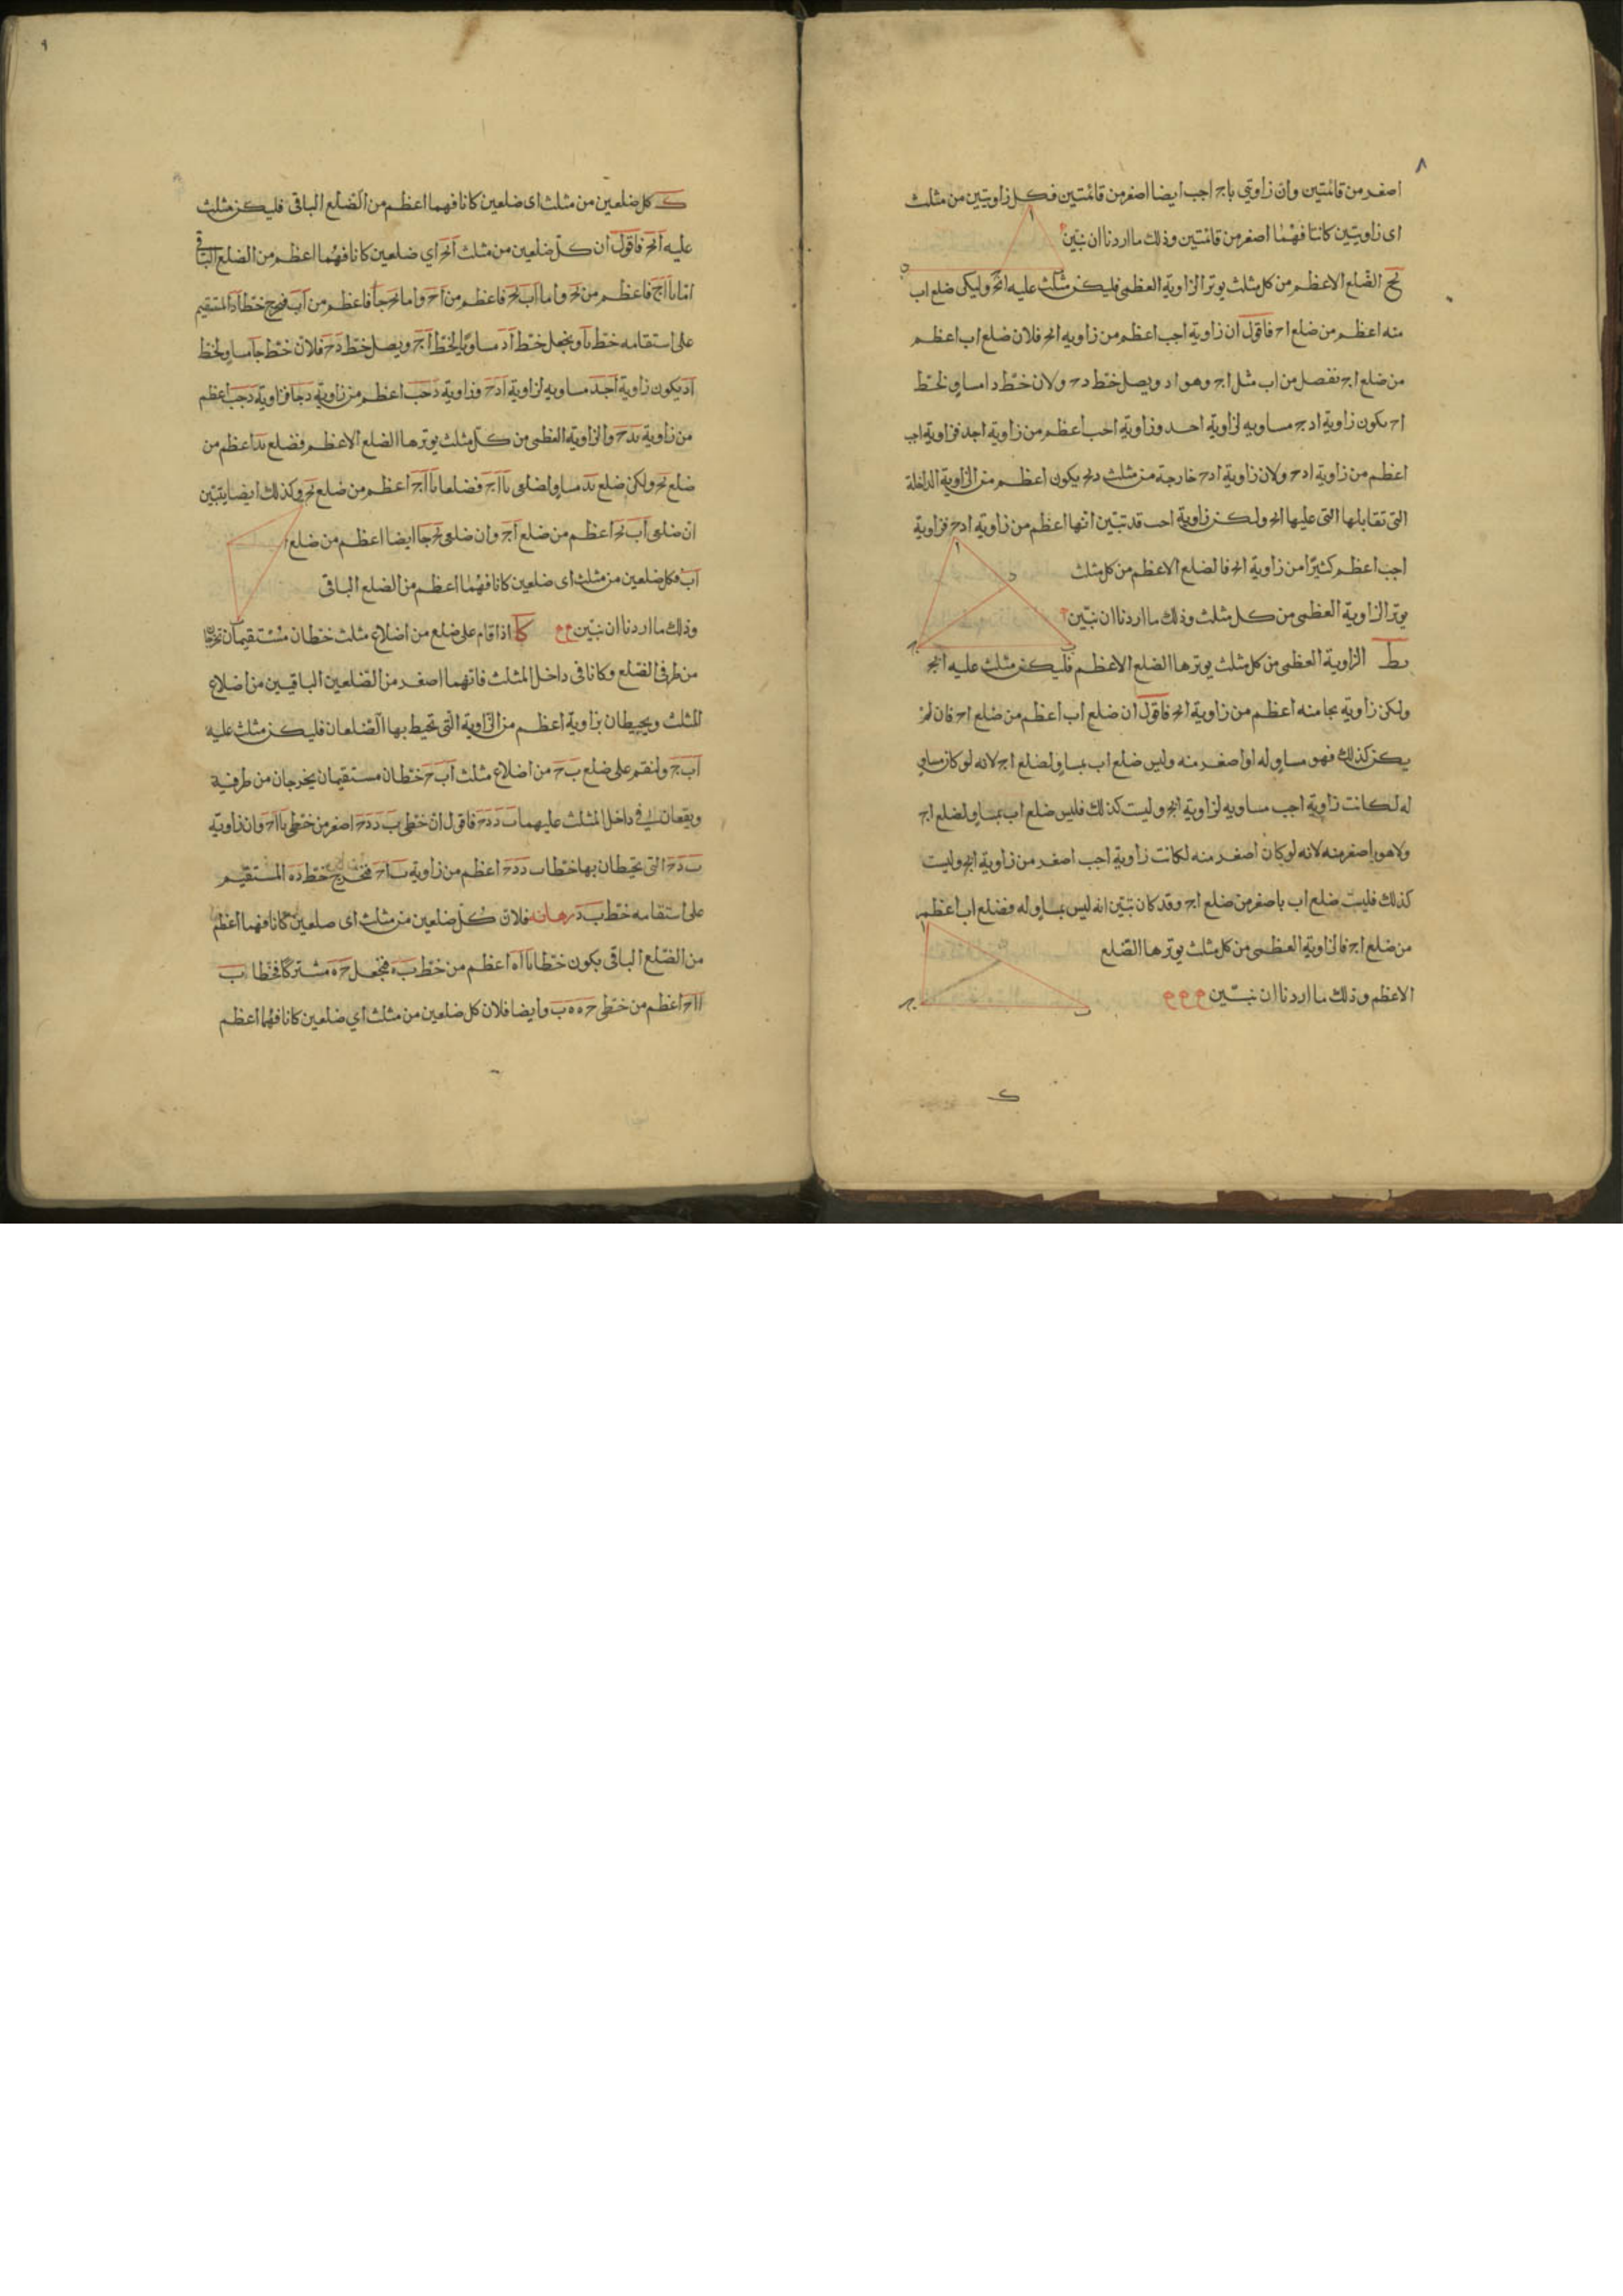 ٨
اصغر من قائمتين وان زاويتي باج اجب ايضا اصغر من قائمتين فكل زاويتين من مثلث
اى زاويتين كانتا فهما اصغر من قائمتين وذلك ما اردنا ان نبين
يح الضلع الاعظم من كل مثلث يوتر الزاوية العظمى فليكن مثلث عليه ابج وليكن ضلع اب
منه اعظم من ضلع اج فاقول ان زاوية اجب اعظم من زاويه ابج فلان ضلع اب اعظم
من ضلع اج نفصل من اب مثل اج وهو اد ويصل خط دج ولان خط دا مساو لخط
اج يكون زاوية ادج مساويه لزاوية اجد وزاوية اجب اعظم من زاوية اجد فزاوية اجب
اعظم من زاوية ادج ولان زاوية ادج خارجة من مثلث دبج يكون اعظم من الزاوية الداخلة
التى تقابلها التى عليها ابج ولكن زاوية اجب قد تبين انها اعظم من زاوية ادج فزاوية
اجب اعظم كثيرا من زاوية ابج فالضلع الاعظم من كل مثلث
يوتر الزاوية العظمى من كل مثلث وذلك ما اردنا ان نبين
يط الزاوية العظمى من كل مثلث يوترها الضلع الاعظم فليكن مثلث عليه ابج
ولكن زاوية بجا منه اعظم من زاوية ابج فاقول ان ضلع اب اعظم من ضلع اج فان لم
يكن كذلك فهو مساو له او اصغر منه وليس ضلع اب بمساو لضلع اج لانه لو كان مساو
له لكانت زاوية اجب مساويه لزاوية ابج وليت كذلك فليس ضلع اب بمساو لضلع اج
ولا هو باصغر منه لانه لو كان اصغر منه لكانت زاوية اجب اصغر من زاوية ابج وليت
كذلك فليت ضلع اب باصغر من ضلع اج وقد كان تبين انه ليس بمساو له فضلع اب اعظم
من ضلع اج فالزاوية العظمى من كل مثلث يوترها الضلع
الاعظم وذلك ما اردنا ان نبين
ك
٩
ك كل ضلعين من مثلث اى ضلعين كانا فهما اعظم من الضلع الباقى فليكن مثلث
عليه ابج فاقول ان كل ضلعين من مثلث ابج اي ضلعين كانا فهما اعظم من الضلع الباقى
اما با اج فاعظم من بج واما اب بج فاعظم من اج واما بج جا فاعظم من اب فنخرج خط اد المستقيم
على استقامه خط با ونجعل خط اد مساويا لخط اج ويصل خط دج فلان خط جا مساو لخط
اد يكون زاوية اجد مساويه لزاوية ادج وزاوية دجب اعظم من زاوية دجا فزاوية دجب اعظم
من زاوية بدج والزاوية العظمى من كل مثلث يوترها الضلع الاعظم فضلع بد اعظم من
ضلع بج ولكن ضلع بد مساو لضلعى با اج فضلعا با اج اعظم من ضلع بج وكذلك ايضا يتبين
ان ضلعى اب بج اعظم من ضلع اج وان ضلعى بج جا ايضا اعظم من ضلع
اب فكل ضلعين من مثلث اى ضلعين كانا فهما اعظم من الضلع الباقى
وذلك ما اردنا ان نبين كا اذا قام على ضلع من اضلاع مثلث خطان مستقيمان يخرجان
من طرفى الضلع وكانا فى داخل المثلث فانهما اصغر من الضلعين الباقيين من اضلاع
المثلث ويحيطان بزاوية اعظم من الزاوية التى تحيط بها الضلعان فليكن مثلث عليه
اب ج ولنقم على ضلع ب ج من اضلاع مثلث اب ج خطان مستقيمان يخرجان من طرفية
ويقعان فى داخل المثلث عليهما ب د دج فاقول ان خطى ب د دج اصغر من خطى با اج وان زاوية
ب دج التى يحيطان بها خطا ب د دج اعظم من زاوية ب اج فنخرج خط ده المستقيم
على استقامه خط ب د برهانه فلان كل ضلعين من مثلث اى ضلعين كانا فهما اعظم
من الضلع الباقى يكون خطا با اه اعظم من خط ب ه فنجعل ج ه مشتركا فخطا ب
ا اج اعظم من خطى ج ه ه ب وايضا فلان كل ضلعين من مثلث اي ضلعين كانا فهما اعظم